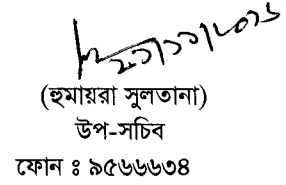 (হুমায়রা সুলতানা)
উপ-সচিব
ফোন ঃ ৯৫৬৬৬৩৪